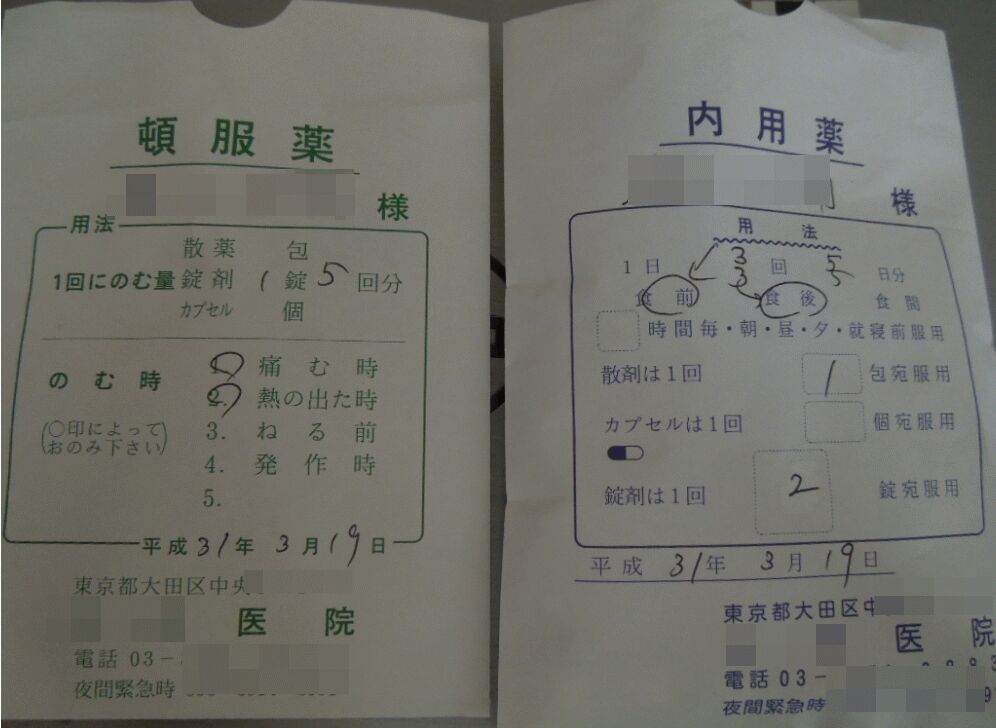 頓服薬
様
用法
散薬 包
1回にのむ量 錠剤 1 錠 5 回分
カプセル 個
のむ時
(○印によっておのみ下さい)
1. 痛む時
2. 熱の出た時
3. ねる前
4. 発作時
5.
平成 31 年 3 月 19 日
東京都大田区中央
医院
電話 03-
夜間緊急時
内用薬
様
用法
1日 3 回 5 日分
3
食前 食後 食間
時間毎・朝・昼・夕・就寝前服用
散剤は1回 1 包宛服用
カプセルは1回 個宛服用
錠剤は1回 2 錠宛服用
平成 31 年 3 月 19 日
東京都大田区中
医院
電話 03-
夜間緊急時